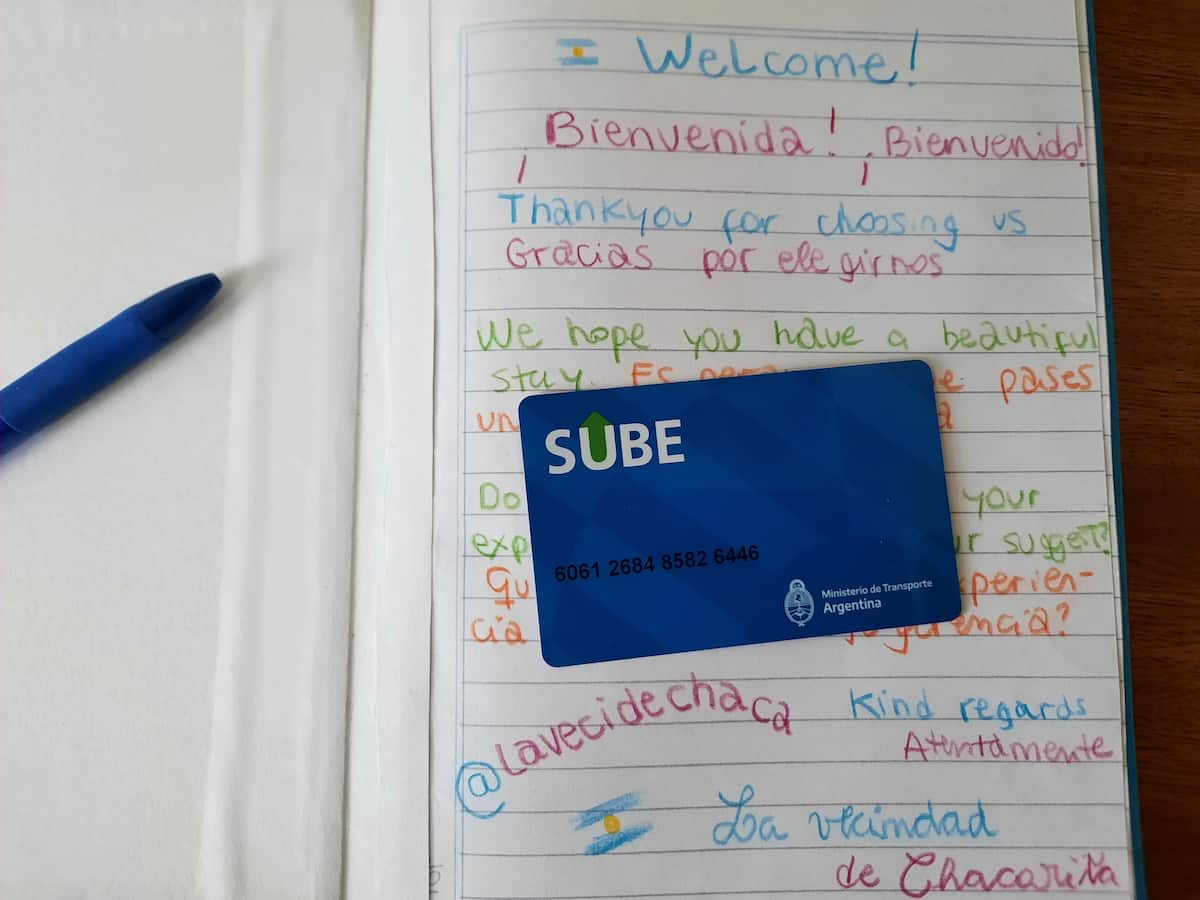 Welcome!
¡Bienvenida! ¡Bienvenido!
Thankyou for choosing us
Gracias por elegirnos
We hope you have a beautiful
stay. Es pases
un
SUBE
Do your
suggest?
6061 2684 8582 6446
Ministerio de Transporte
Argentina
cia
@lavecidechaca
Kind regards
Atentamente
La vecindad
de Chacarita